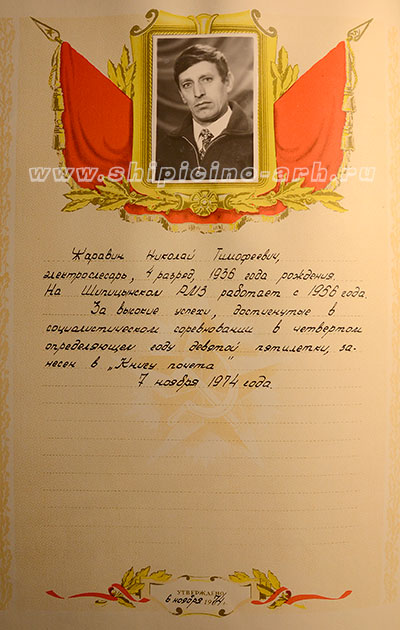 www.shipicino-arh.ru
Жаравин Николай Тимофеевич,
электрослесарь, 4 разряд, 1936 года рождения.
На Шипицынском РМЗ работает с 1956 года.
За высокие успехи, достигнутые в
социалистическом соревновании в четвертом
определяющем году девятой пятилетки, за-
несен в „Книгу почета"
7 ноября 1974 года.
УТВЕРЖДЕНО
6 ноября 1974 г.